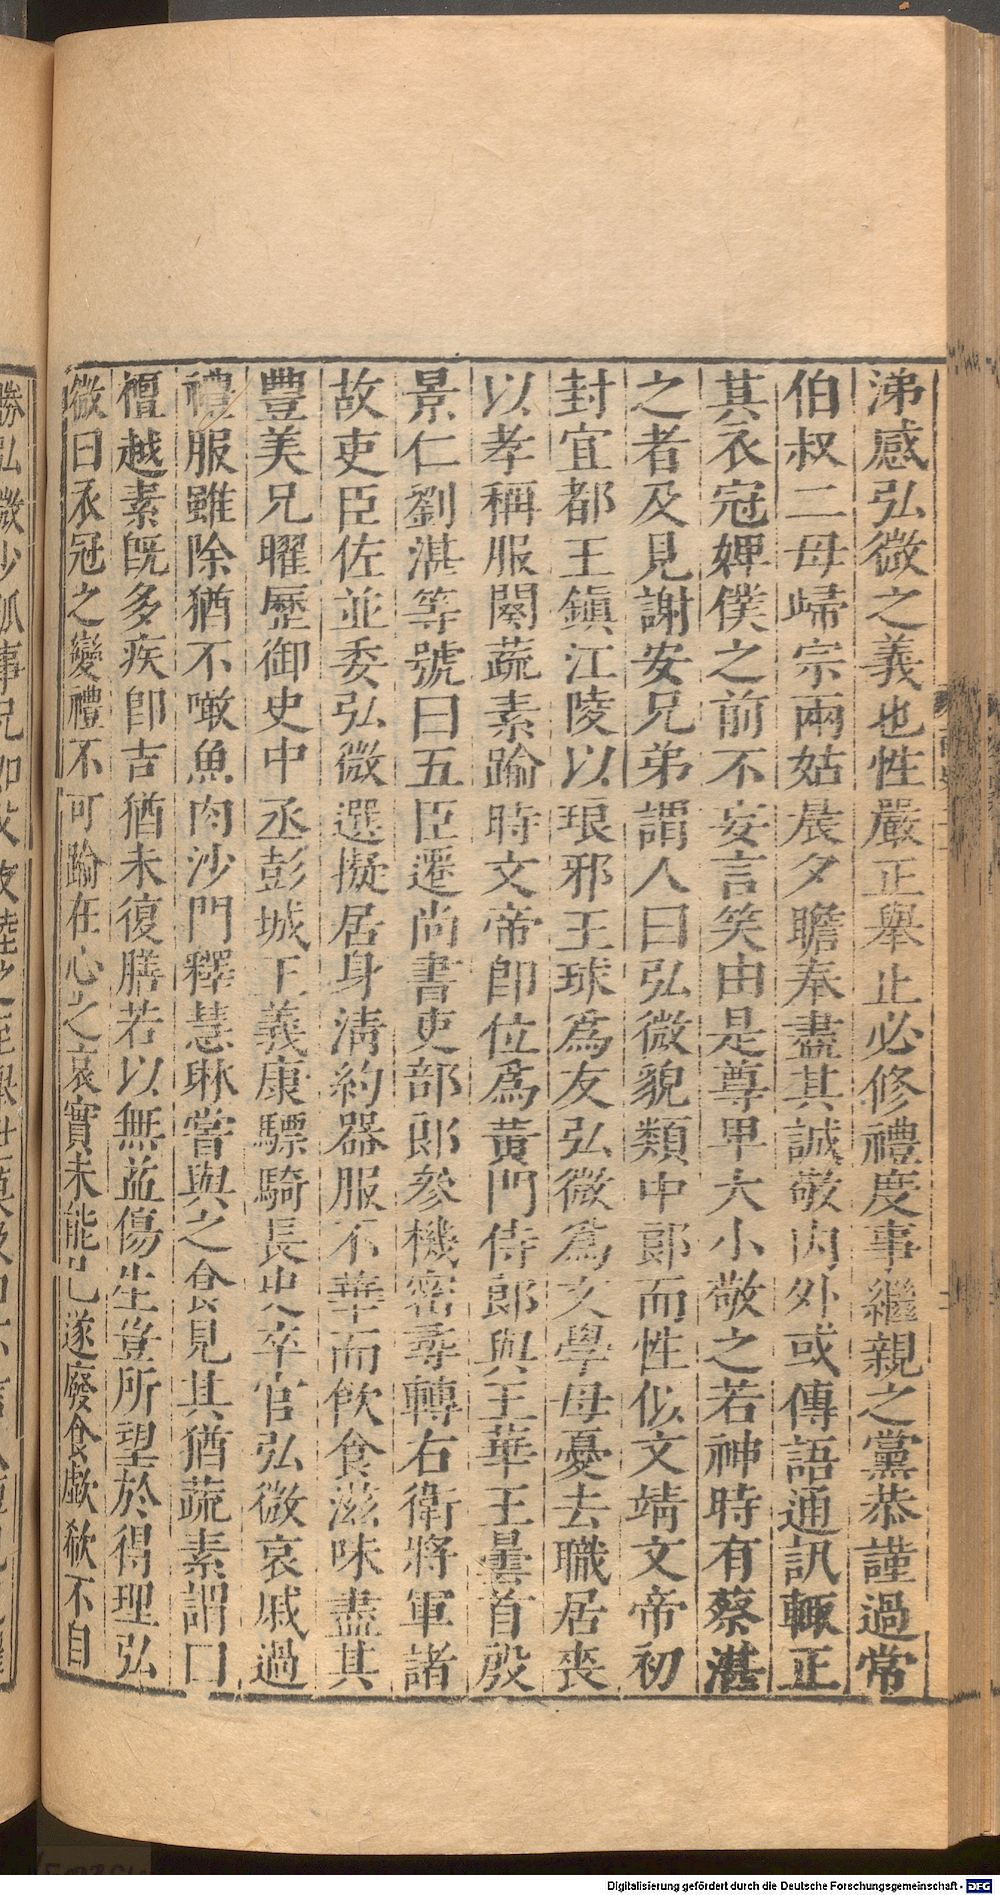 涕感弘微之義也性嚴正舉止必修禮度事繼親之黨恭謹過常
伯叔二母歸宗兩姑晨夕瞻奉盡其誠敬内外或傳語通訊輒正
其衣冠婢僕之前不妄言笑由是尊卑大小敬之若神時有蔡湛
之者及見謝安兄弟謂人曰弘微貌類中郎而性似文靖文帝初
封宜都王鎮江陵以琅邪王球爲友弘微爲文學母憂去職居喪
以孝稱服闋蔬素踰時文帝即位爲黃門侍郎與王華王曇首殷
景仁劉湛等號曰五臣遷尚書吏部郎參機密尋轉右衛將軍諸
故吏臣佐並委弘微選擬居身清約器服不華而飲食滋味盡其
豐美兄曜歷御史中丞彭城王義康驃騎長史卒官弘微哀戚過
禮服雖除猶不噉魚肉沙門釋慧琳嘗與之食見其猶蔬素謂曰
檀越素既多疾即吉猶未復膳若以無益傷生豈所望於得理弘
微曰衣冠之變禮不可踰在心之哀實未能已遂廢食歔欷不自
Digitalisierung gefördert durch die Deutsche Forschungsgemeinschaft - DFG